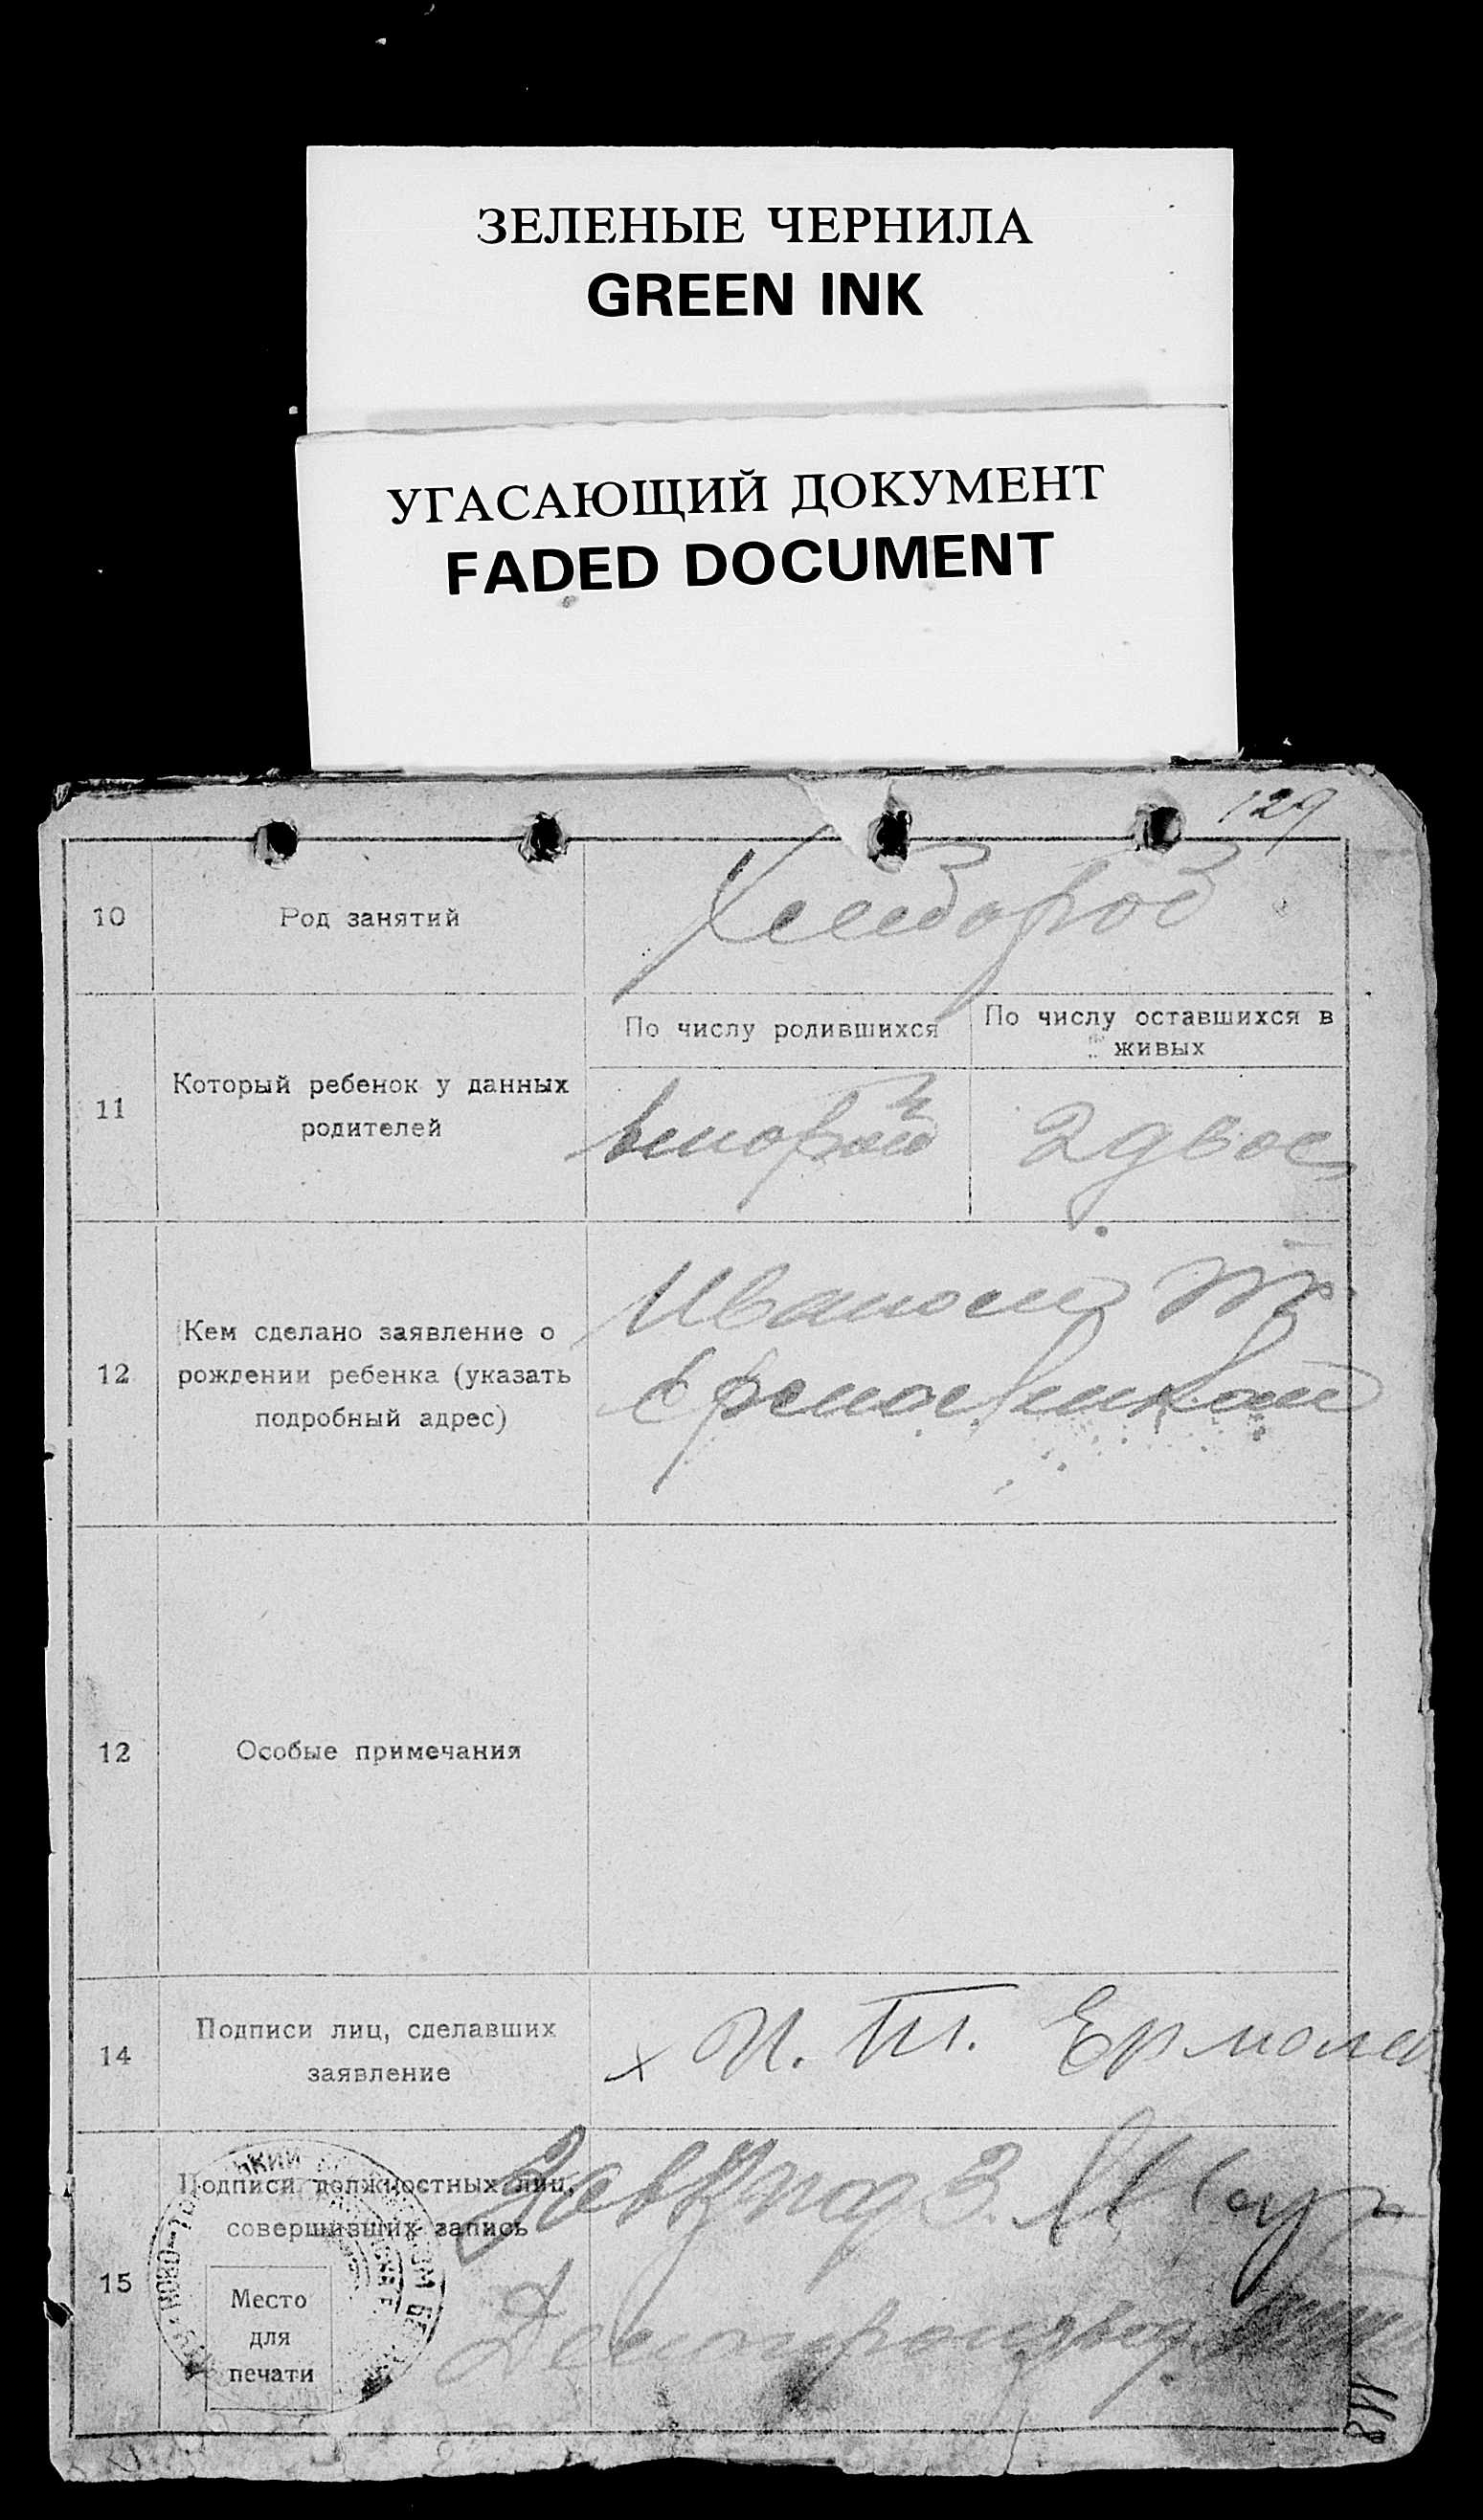 ЗЕЛЕНЫЕ ЧЕРНИЛА
GREEN INK
УГАСАЮЩИЙ ДОКУМЕНТ
FADED DOCUMENT
129
10
Род занятий
Хлебороб
11
Который ребенок у данных
родителей
По числу родившихся
второй
По числу оставшихся в
живых
2 двое
12
Кем сделано заявление о
рождении ребенка (указать
подробный адрес)
Иваном
12
Особые примечания
14
Подписи лиц, сделавших
заявление
х И. Т. Ермола
15
Подписи должностных лиц,
совершивших запись
Место
для
печати
Делопроизвод